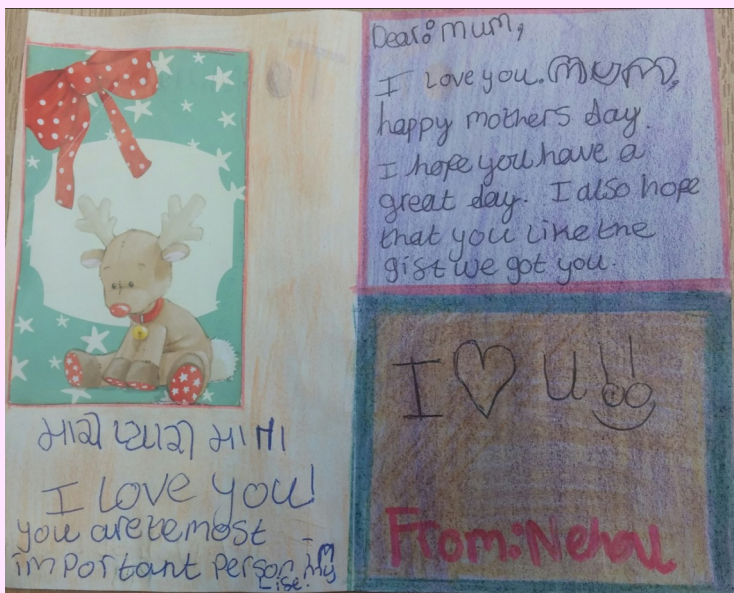 મારી પ્યારી માતા
I LOVE you!
you are te most
important person in my
Lise!
Dear: mum,
I love you. mum,
happy mothers day.
I hope you have a
great day. I also hope
that you like the
gist we got you.
I ♡ U!!
From: Nehal